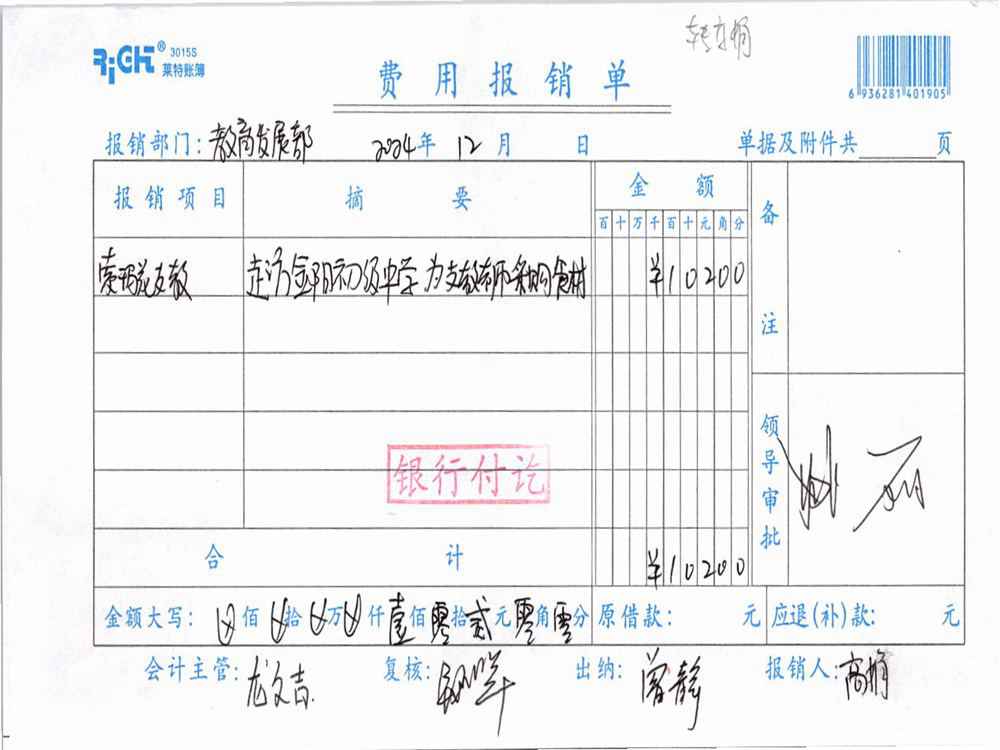 RiCH® 3015S
莱特账簿
转高娟
费用报销单
6 936281 401905
报销部门：教育发展部 2024年 12月 日 单据及附件共 页
报销项目 摘要 金额 备注
百十万千百十元角分
索玛花支教 走访金阳初级中学为支教老师采购食材 ¥10200
银行付讫
领导审批
合计 ¥10200
金额大写： 佰 拾 万 仟壹佰零拾贰元零角零分 原借款： 元 应退(补)款： 元
会计主管：龙文吉 复核： 出纳：曾静 报销人：高娟